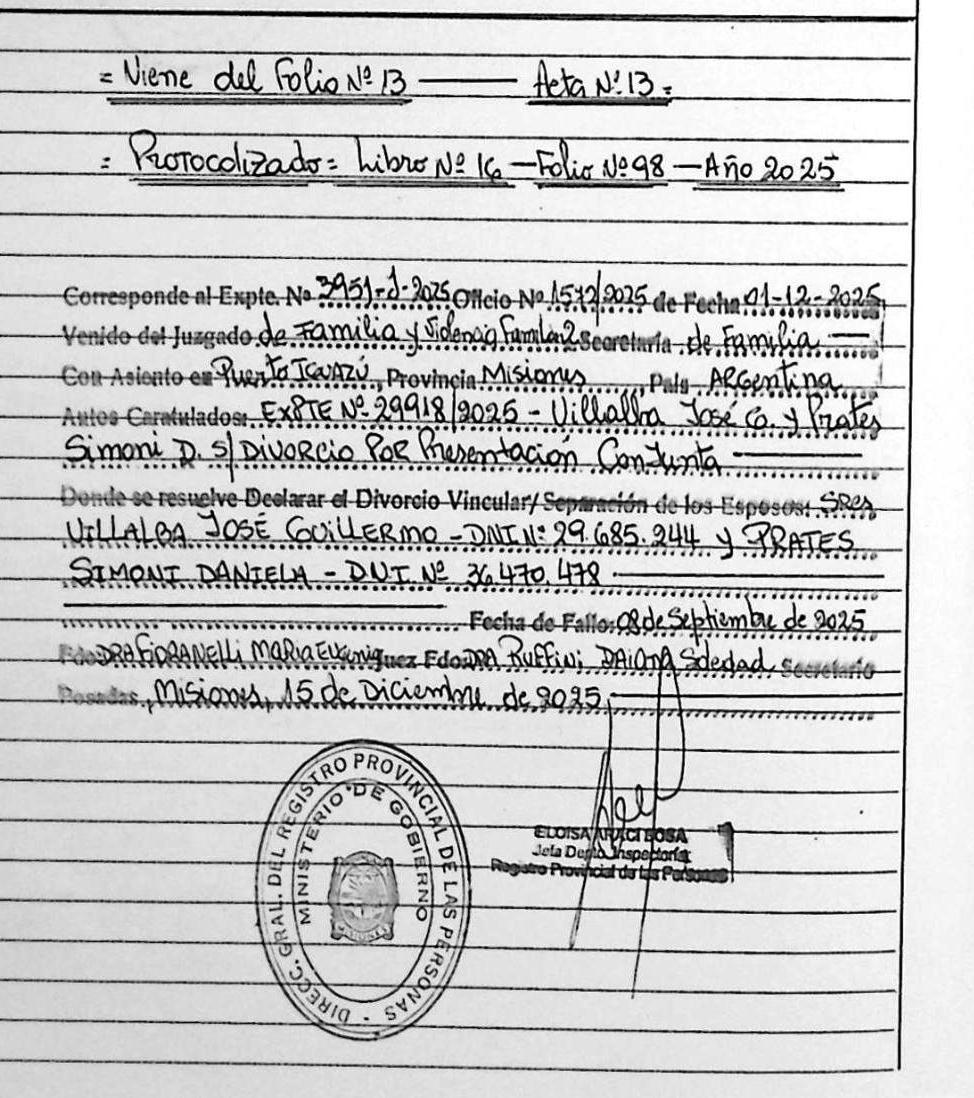 = Viene del Folio Nº 13 — Acta Nº 13 =
= Protocolizado = Libro Nº 16 — Folio Nº 98 — Año 2025
Corresponde al Expte. No 3951-J-2025 Oficio No 1572/2025 de Fecha 01-12-2025
Venido del Juzgado de Familia y Violencia Familiar 2 Secretaría de Familia —
Con Asiento en Puerto Iguazú, Provincia Misiones, País ARGentina
Autos Caratulados: EXPTE Nº 29918/2025 - Villalba José G. y Prates
Simoni D. S/ DIVORCIO POR Presentación Conjunta —
Donde se resuelve Declarar el Divorcio Vincular/ Separación de los Esposos: SRES
VILLALBA JOSÉ GUILLERMO - DNI Nº 29.685.244 y PRATES
SIMONI DANIELA - DNI Nº 36.470.478 —
Fecha de Fallo: 08 de Septiembre de 2025
Fdo. DRA FIORANELLI MARIA EUGENIA Juez Fdo. DRA Ruffini DAIANA Soledad Secretario
Posadas, Misiones, 15 de Diciembre de 2025 —
DIRECC. GRAL. DEL REGISTRO PROVINCIAL DE LAS PERSONAS
MINISTERIO DE GOBIERNO
MISIONES
ELOISA ARACI BOSA
Jefa Depto. Inspectoría
Registro Provincial de las Personas